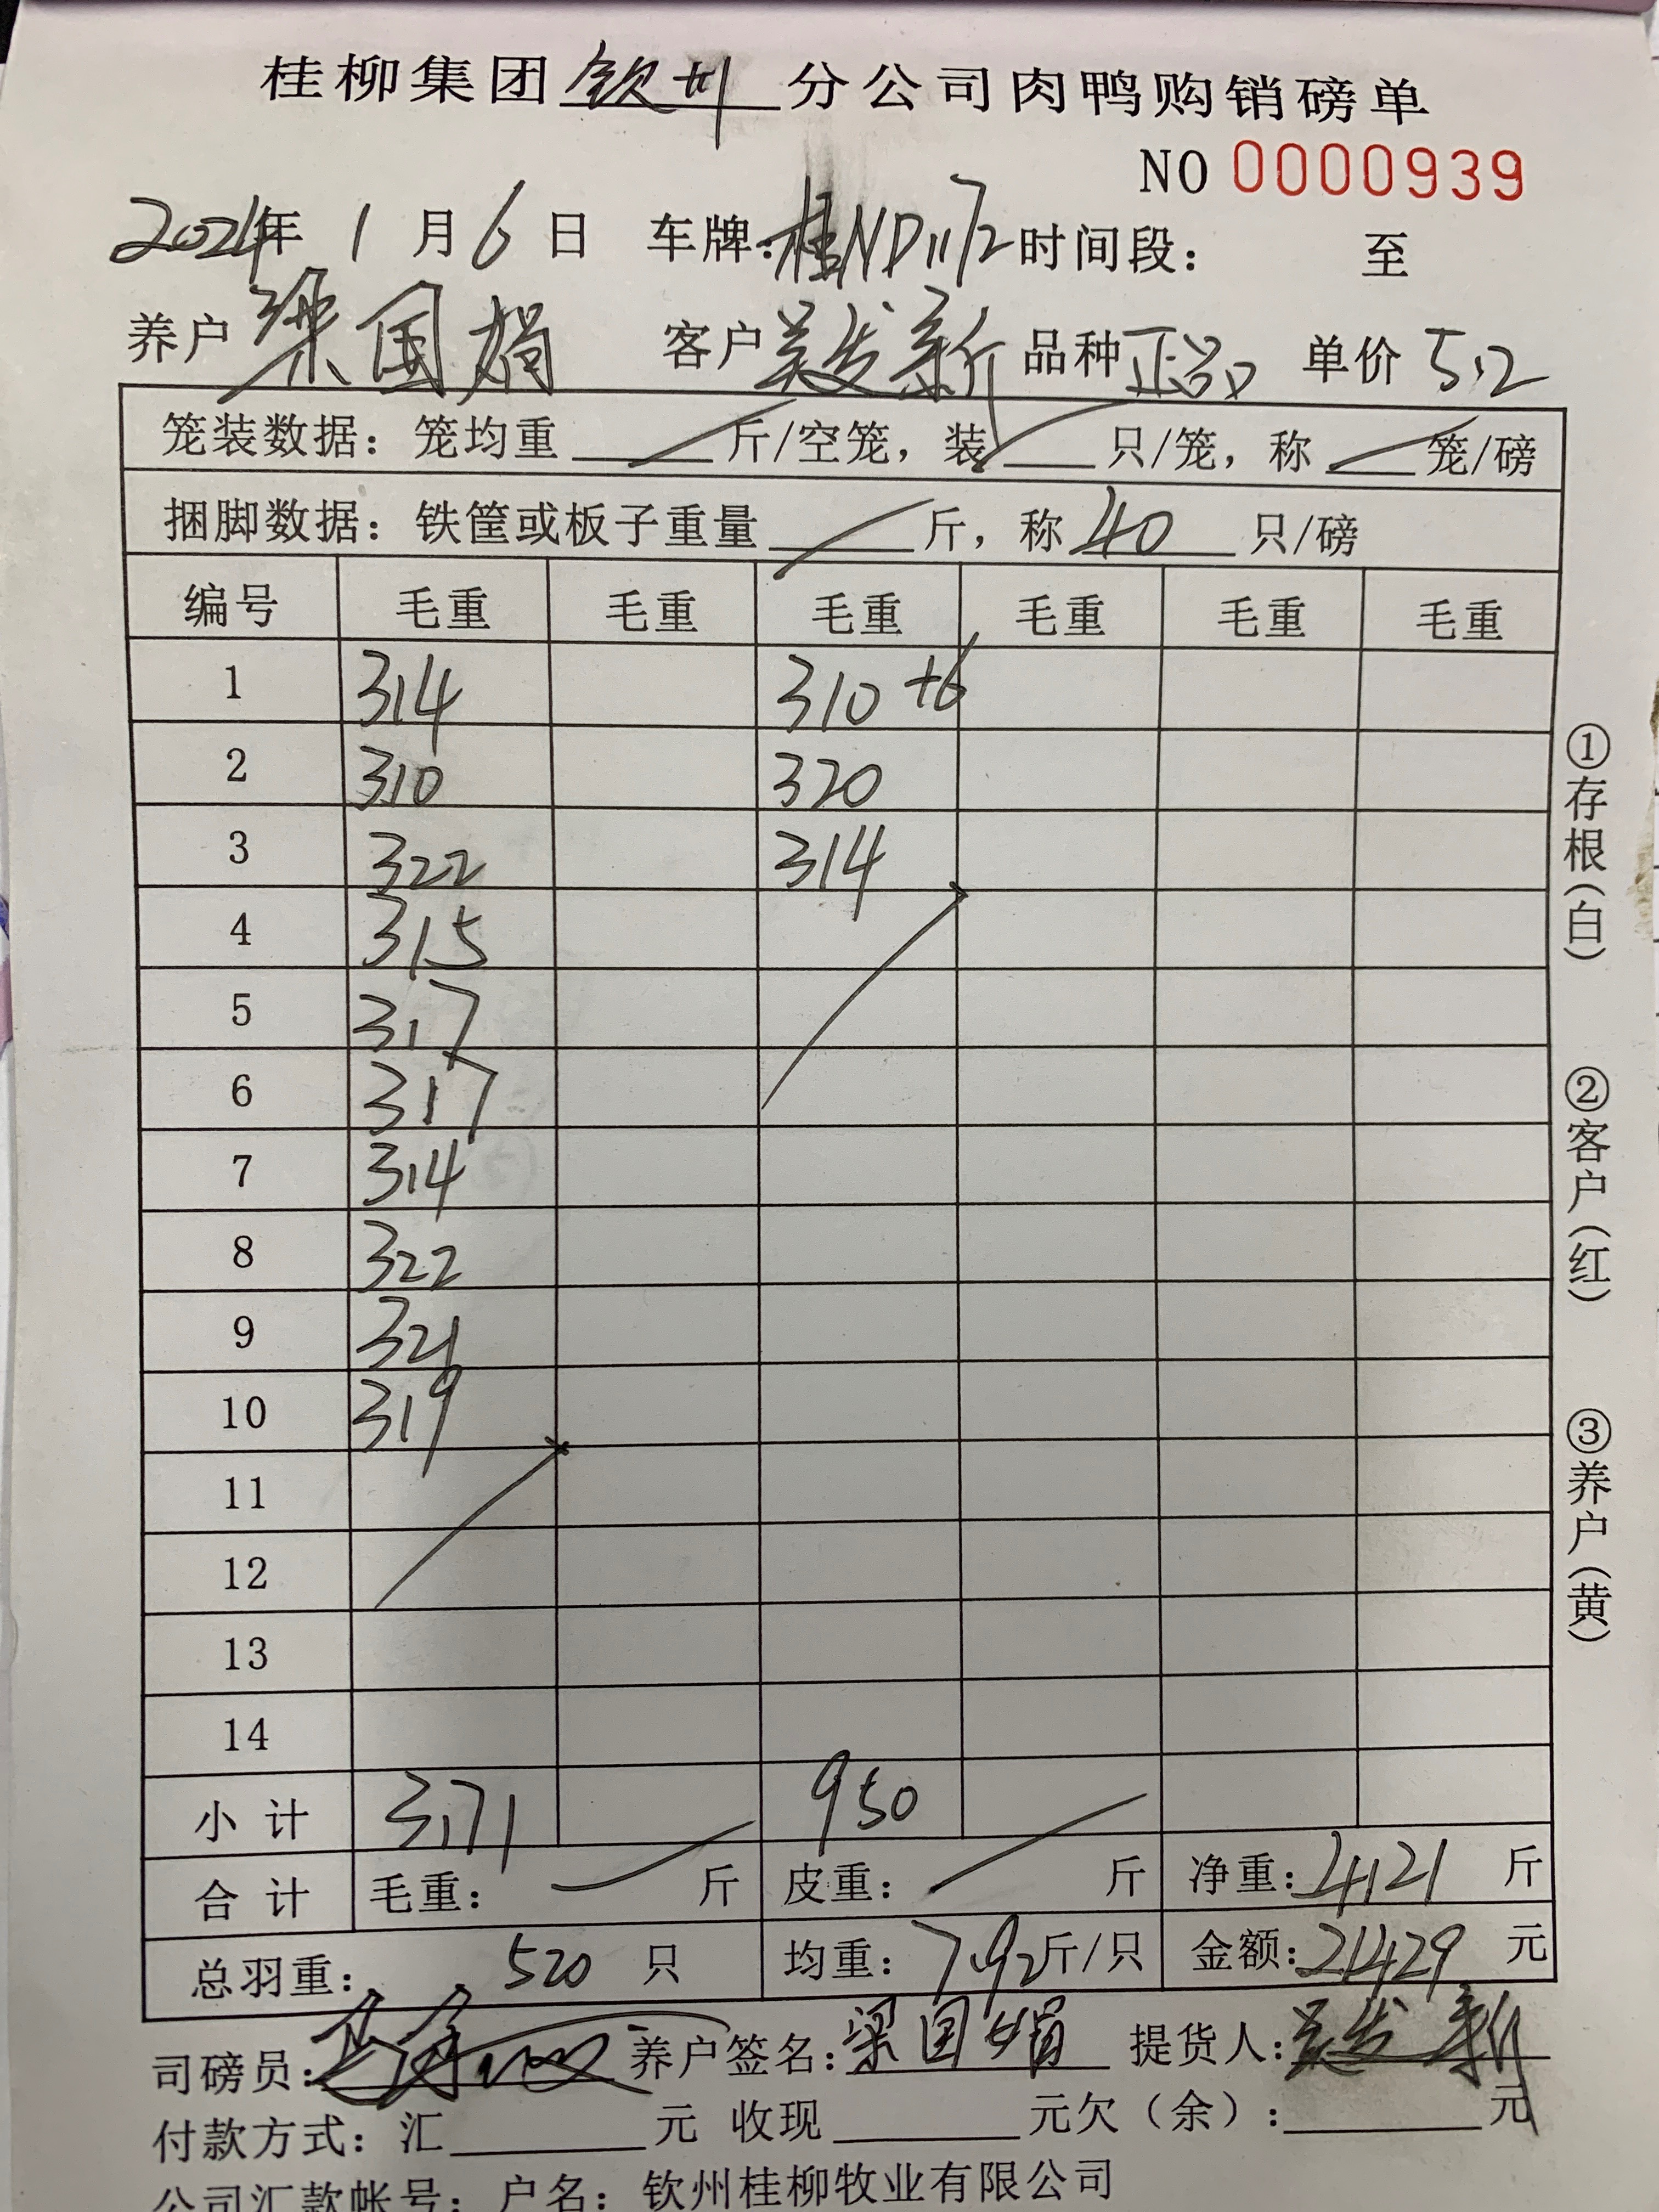 桂柳集团钦州分公司肉鸭购销磅单
NO 0000939
2024年 1 月 6 日 车牌:桂ND1172 时间段: 至
养户 梁国娟 客户 吴发新 品种 正品 单价 5.2
笼装数据: 笼均重 斤/空笼, 装 只/笼, 称 笼/磅
捆脚数据: 铁筐或板子重量 斤, 称 40 只/磅
编号 毛重 毛重 毛重 毛重 毛重 毛重
1 314 310 +6
2 310 320
3 322 314
4 315
5 317
6 317
7 314
8 322
9 321
10 319
11
12
13
14
小计 3171 950
合计 毛重: 斤 皮重: 斤 净重: 4121 斤
总羽重: 520 只 均重: 7.92 斤/只 金额: 21429 元
司磅员: 养户签名: 梁国娟 提货人: 吴发新
付款方式: 汇 元 收现 元欠(余): 元
公司汇款帐号: 户名: 钦州桂柳牧业有限公司
①存根(白)
②客户(红)
③养户(黄)